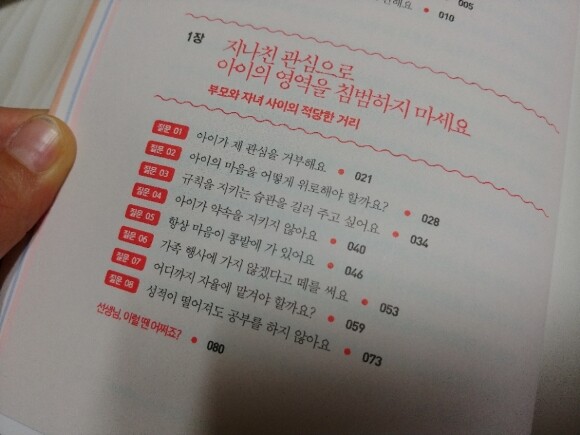 005
010
1장
지나친 관심으로
아이의 영역을 침범하지 마세요
부모와 자녀 사이의 적당한 거리
질문 01 아이가 제 관심을 거부해요 • 021
질문 02 아이의 마음을 어떻게 위로해야 할까요? • 028
질문 03 규칙을 지키는 습관을 길러 주고 싶어요 • 034
질문 04 아이가 약속을 지키지 않아요 • 040
질문 05 항상 마음이 콩밭에 가 있어요 • 046
질문 06 가족 행사에 가지 않겠다고 떼를 써요 • 053
질문 07 어디까지 자율에 맡겨야 할까요? • 059
질문 08 성적이 떨어져도 공부를 하지 않아요 • 073
선생님, 이럴 땐 어쩌죠? • 080